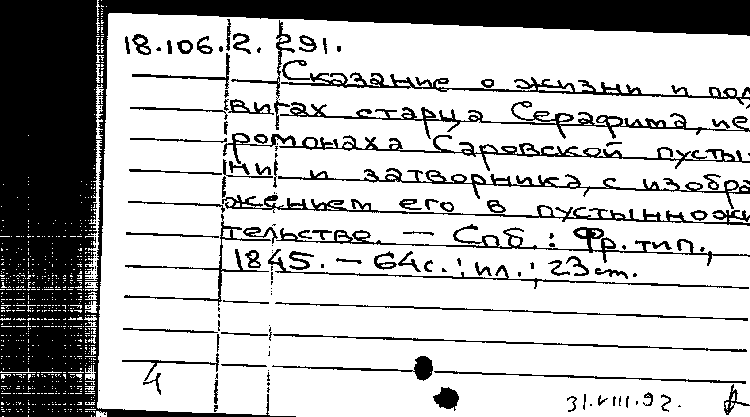 18.106.2.291.
Сказание о жизни и под
вигах старца Серафима, ие
ромонаха Саровской пусты
ни и затворника, с изобра
жением его в пустынножи
тельстве. — Спб. : Фр. тип.,
1845. — 64с. : ил. ; 23 cm.
4 31.VIII.92.